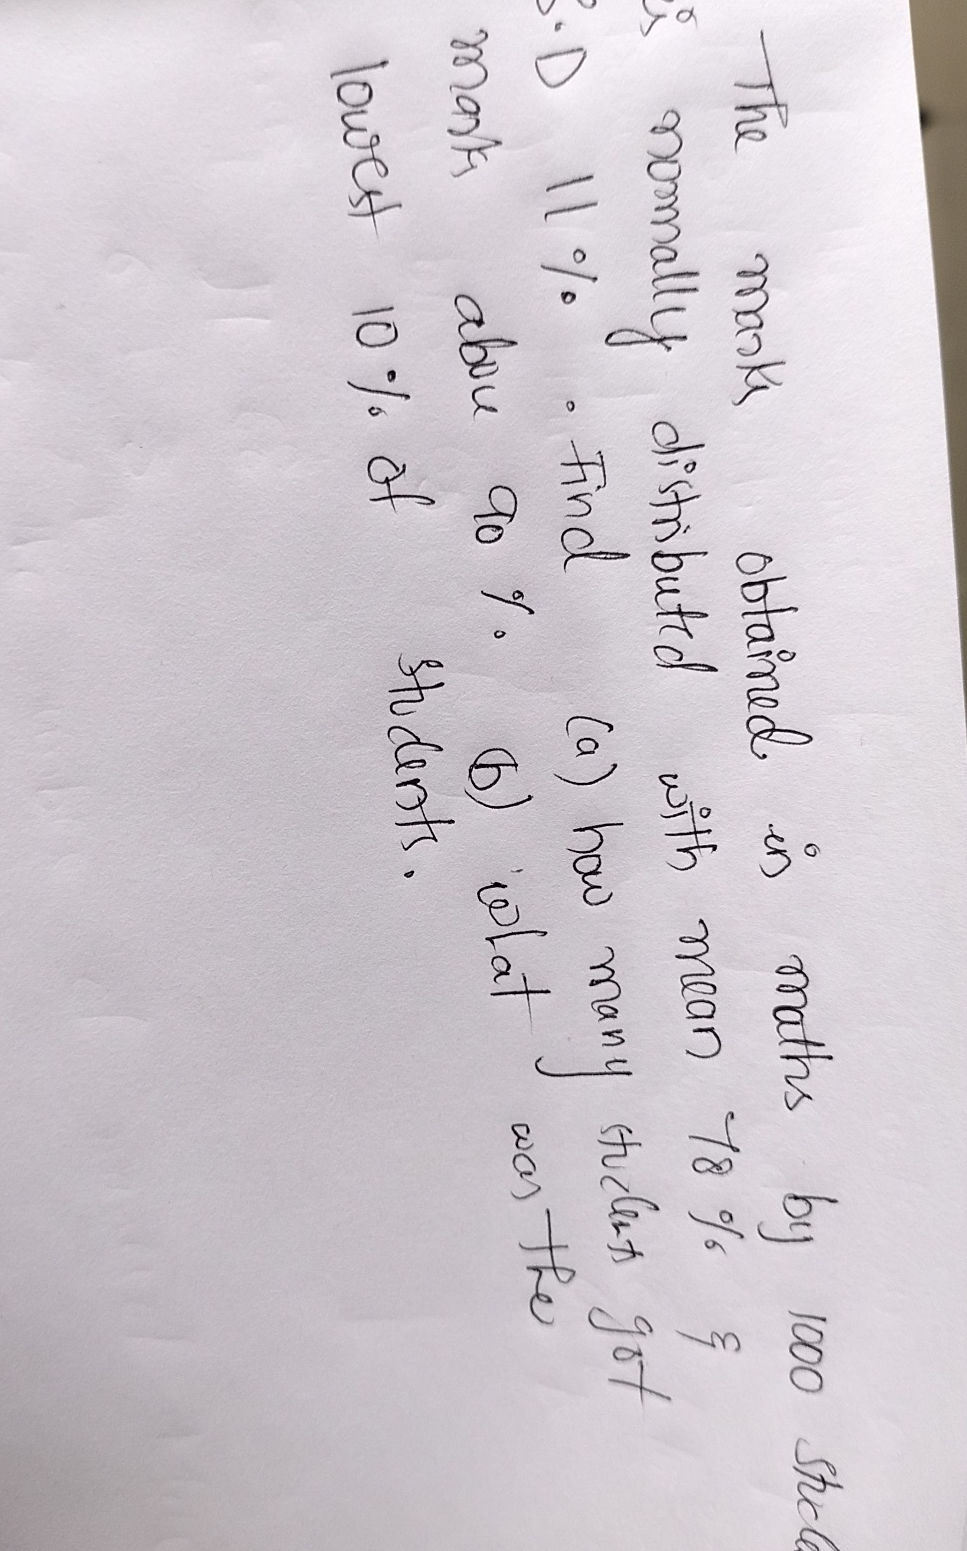 The marks obtained in maths by 1000 stude
is normally distributed with mean 78% &
S.D 11%. Find (a) how many students got
marks above 90% (b) what was the
lowest 10% of students.